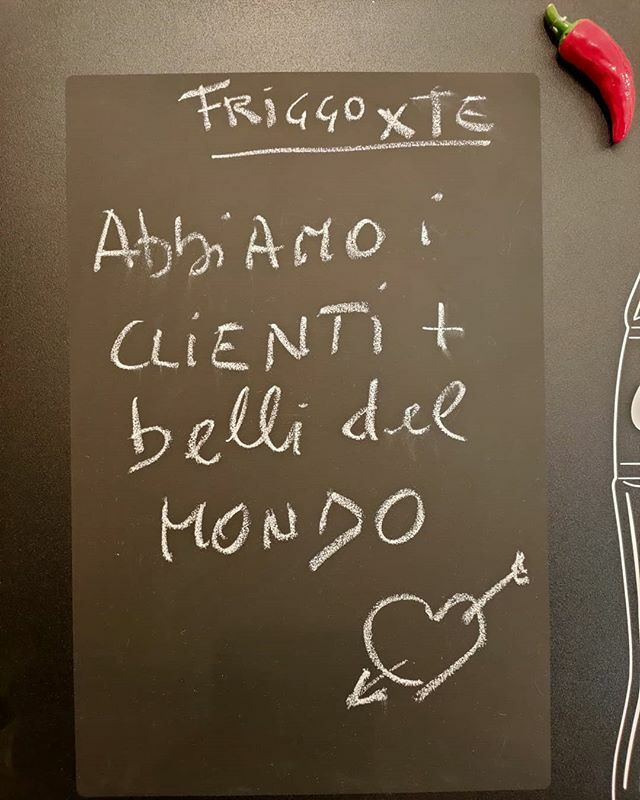 FRiGGO x TE
AbbiAMO i
CLiENTi +
belli del
MONDO